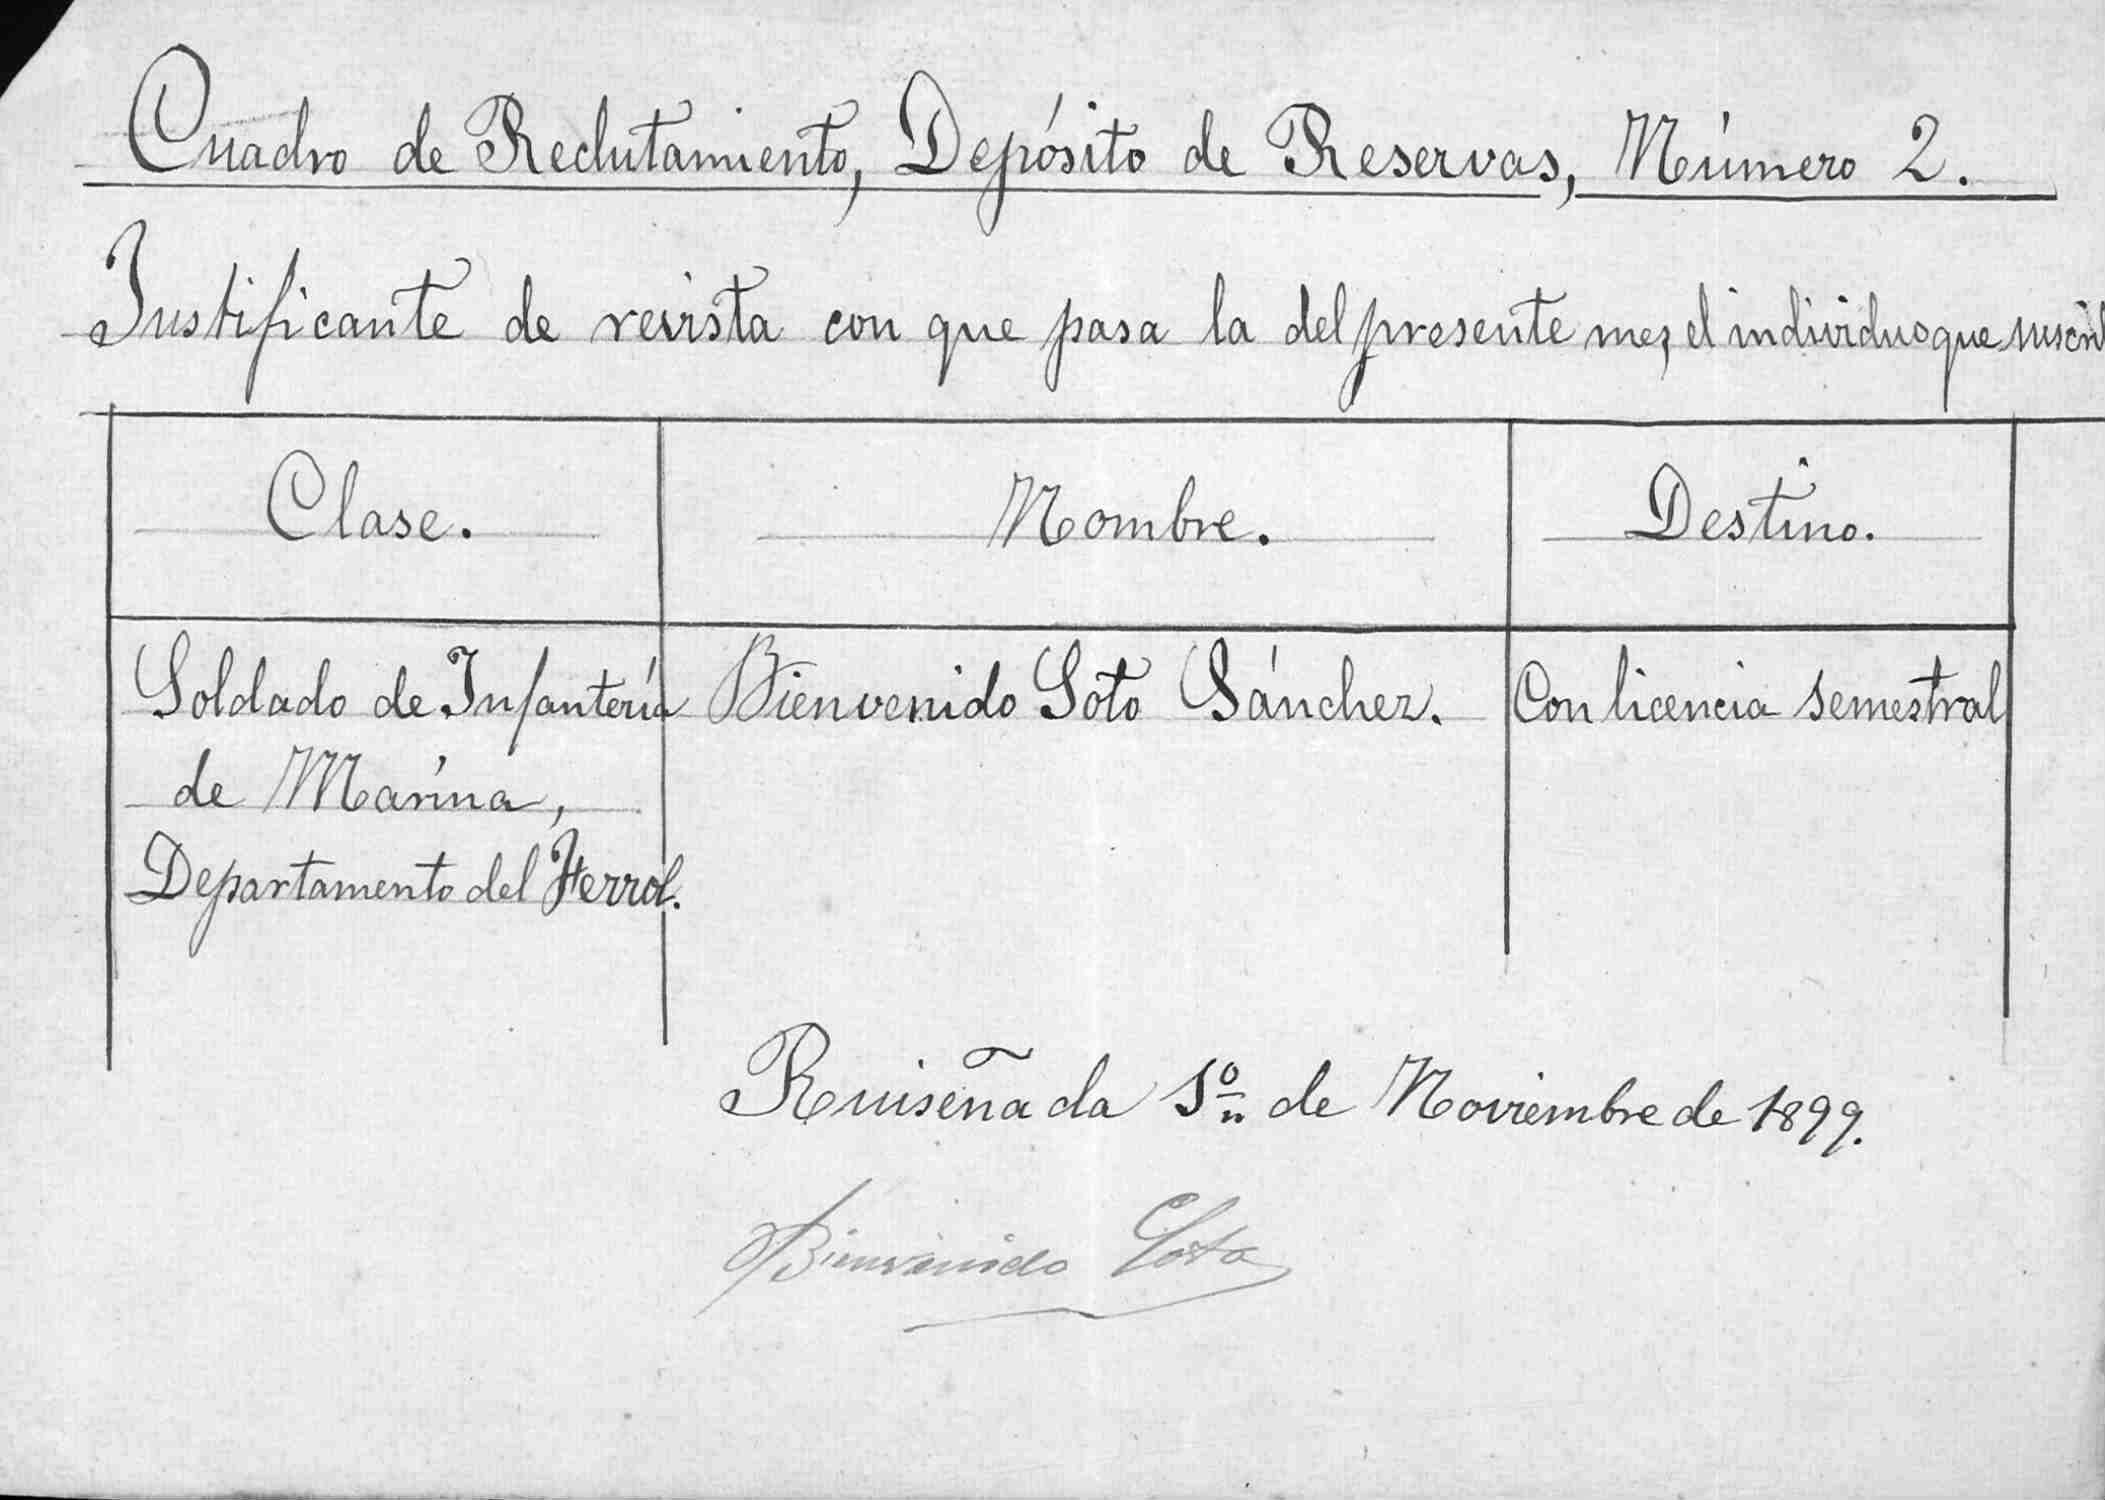 Cuadro de Reclutamiento, Depósito de Reservas, Número 2.
Justificante de revista con que pasa la del presente mes, el individuo que suscrib
Clase.
Nombre.
Destino.
Soldado de Infantería
de Marina,
Departamento del Ferrol.
Bienvenido Soto Sánchez.
Con licencia semestral
Ruiseñada 1º de Noviembre de 1899.
Bienvenido Soto